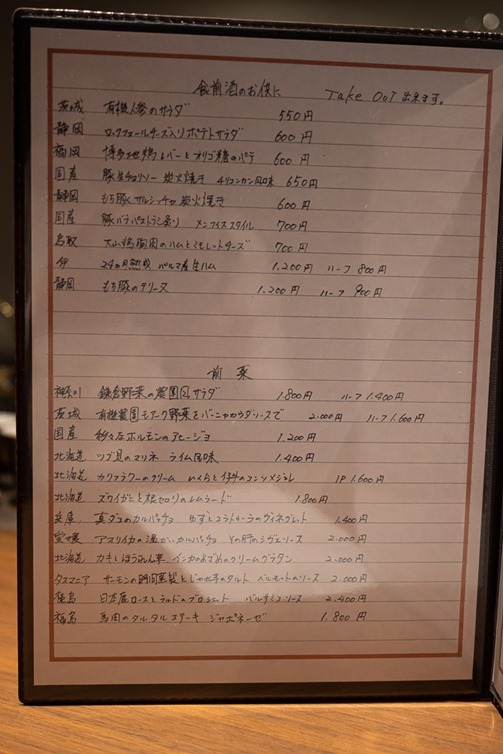 食前酒のお供に Take Out 出来ます。
茨城 有機人参のサラダ 550円
静岡 ロックフォールチーズ入りポテトサラダ 600円
福岡 博多地鶏レバーとオリゴ糖のパテ 600円
国産 豚生チョリソー 炭火焼き メキシカン風味 650円
静岡 もち豚サルシッチャ 炭火焼き 600円
国産 豚バラパストラミ炙り メンフィススタイル 700円
鳥取 大山鶏胸肉のハムとミモレットチーズ 700円
伊 24ヵ月熟成 パルマ産生ハム 1,200円 ハーフ 800円
静岡 もち豚のテリーヌ 1,200円 ハーフ 900円
前菜
神奈川 鎌倉野菜の農園風サラダ 1,800円 ハーフ 1,400円
茨城 有機農園モアーク野菜をバーニャカウダソースで 2,000円 ハーフ 1,600円
国産 ホルモンのアヒージョ 1,200円
北海道 ツブ貝のマリネ ライム風味 1,400円
北海道 カリフラワーのクリーム いくらと仔牛のコンソメジュレ 1P 1,600円
北海道 ズワイガニと根セロリのレムラード 1,800円
兵庫 真ダコのカルパッチョ ゆずとコラトゥーラのヴィネグレット 1,400円
愛媛 アオリイカの温かいカルパッチョ その肝のシヴェソース 2,000円
北海道 カキとほうれん草 インカのめざめのクリームグラタン 2,000円
タスマニア サーモンの瞬間燻製とじゃが芋のタルト ベルモットのソース 2,000円
日本鹿ロースとラルドのブロシェット バルサミコソース 2,400円
福島 馬肉のタルタルステーキ ジャポネーゼ 1,800円